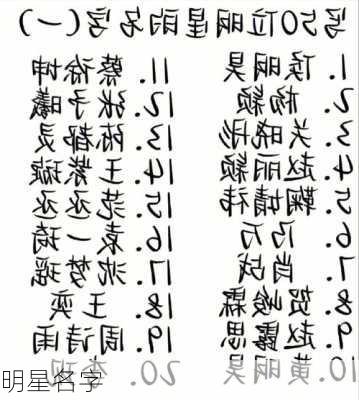 写50位明星的名字(一)
1. 侯明昊
2. 杨颖
3. 关晓彤
4. 赵丽颖
5. 鞠婧祎
6. 乃万
7. 肖战
8. 贺峻霖
9. 赵露思
10. 黄明昊
11. 蔡徐坤
12. 张予曦
13. 陈都灵
14. 王紫璇
15. 范丞丞
16. 袁一琦
17. 沈梦瑶
18. 王奕
19. 周诗雨
20. 李现
明星名字